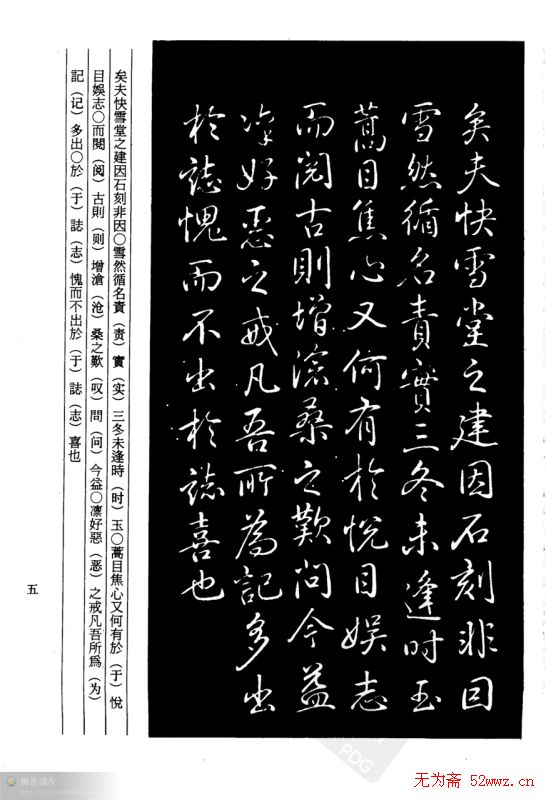 矣夫快雪堂之建因石刻非因
雪然循名責實三冬未逢时玉
蒿目焦心又何有於悅目娱志
而阅古則增滄桑之歎问今益
凛好惡之戒凡吾所為記多出
於誌愧而不出於誌喜也
矣夫快雪堂之建因石刻非因○雪然循名責（责）實（实）三冬未逢時（时）玉○蒿目焦心又何有於（于）悅
目娛志○而閱（阅）古則（则）增滄（沧）桑之歎（叹）問（问）今益○凛好惡（恶）之戒凡吾所爲（为）
記（记）多出○於（于）誌（志）愧而不出於（于）誌（志）喜也
五
PDG
无为斋 52wwz.cn